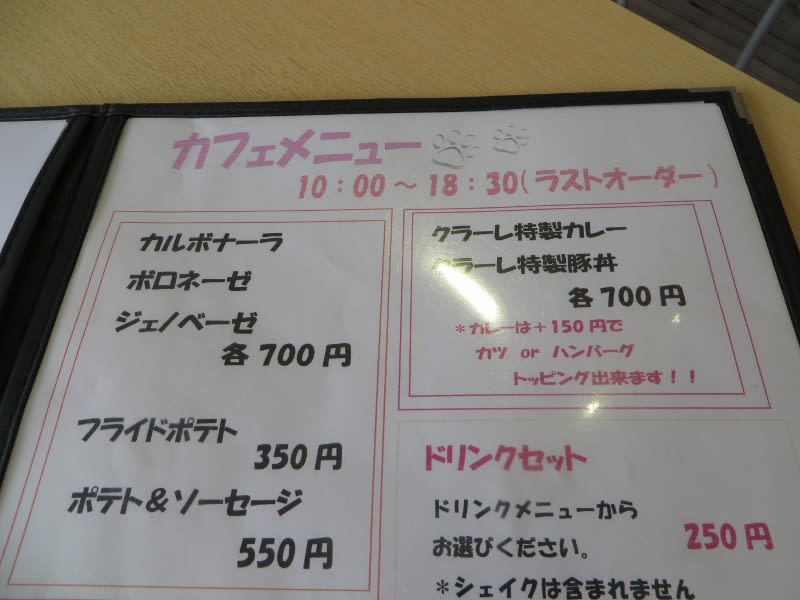 カフェメニュー
10：00～18：30(ラストオーダー)
カルボナーラ
ボロネーゼ
ジェノベーゼ
各700円
フライドポテト
350円
ポテト＆ソーセージ
550円
クラーレ特製カレー
クラーレ特製豚丼
各700円
＊カレーは＋150円で
カツ or ハンバーグ
トッピング出来ます！！
ドリンクセット
ドリンクメニューから
お選びください。
250円
＊シェイクは含まれません